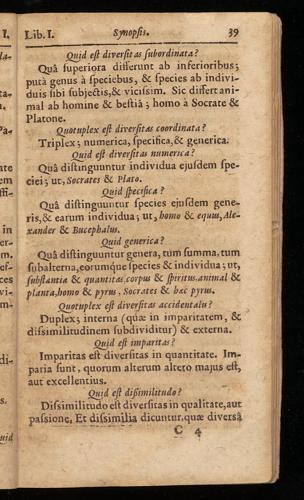 Lib. I. Synopsis. 39
Quid est diversitas subordinata?
Quâ superiora differunt ab inferioribus;
putà genus à speciebus, & species ab indivi-
duis sibi subjectis, & vicissim. Sic differt ani-
mal ab homine & bestiâ; homo à Socrate &
Platone.
Quotuplex est diversitas coordinata?
Triplex; numerica, specifica, & generica.
Quid est diversitas numerica?
Quâ distinguuntur individua ejusdem spe-
ciei; ut, Socrates & Plato.
Quid specifica?
Quâ distinguuntur species ejusdem gene-
ris, & earum individua; ut, homo & equus, Ale-
xander & Bucephalus.
Quid generica?
Quâ distinguuntur genera, tum summa, tum
subalterna, eorumque species & individua; ut,
substantia & quantitas, corpus & spiritus, animal &
planta, homo & pyrus, Socrates & hæc pyrus.
Quotuplex est diversitas accidentalis?
Duplex; interna (quæ in imparitatem, &
dissimilitudinem subdividitur) & externa.
Quid est imparitas?
Imparitas est diversitas in quantitate. Im-
paria sunt, quorum alterum altero majus est,
aut excellentius.
Quid est dissimilitudo?
Dissimilitudo est diversitas in qualitate, aut
passione, Et dissimilia dicuntur, quæ diversâ
C 4